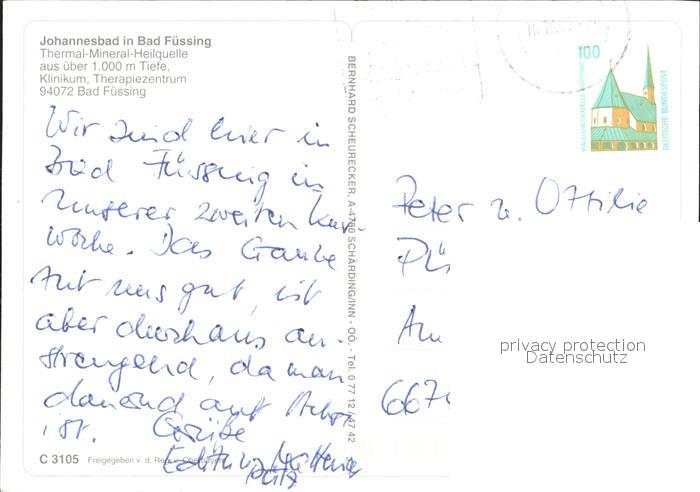 Johannesbad in Bad Füssing
Thermal-Mineral-Heilquelle
aus über 1.000 m Tiefe,
Klinikum, Therapiezentrum
94072 Bad Füssing
Wir sind hier in
Bad Füssing in
unserer zweiten Kur-
woche. Das Ganze
tut uns gut, ist
aber durchaus an-
strengend, da man
dauernd auf Achse
ist. Grüße
Edith u.
C 3105 Freigegeben v. d. Reg. v. Oberbayern
BERNHARD SCHEURECKER, A-4780 SCHÄRDING/INN - OÖ. - Tel. 0 77 12 / 47 42
100
WALLFAHRTSKAPELLE ALTÖTTING
DEUTSCHE BUNDESPOST
Peter u. Ottilie
Dü
Am
667
privacy protection
Datenschutz